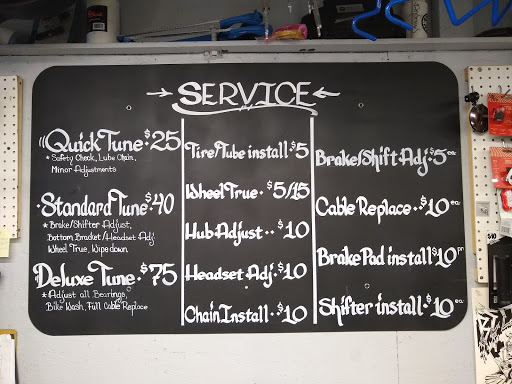 SERVICE
Quick Tune · $25
* Safety Check, Lube Chain,
Minor Adjustments
· Standard Tune · $40
* Brake/Shifter Adjust,
Bottom Bracket/Headset Adj.
Wheel True, Wipe down
Deluxe Tune · $75
* Adjust all Bearings,
Bike Wash, Full Cable Replace
Tire/Tube install $5
Wheel True · $5/15
Hub Adjust · · $10
Headset Adj. $10
Chain Install · $10
Brake/Shift Adj. $5 ea.
Cable Replace · · $10 ea.
Brake Pad install $10 pr
Shifter install · $10 ea.